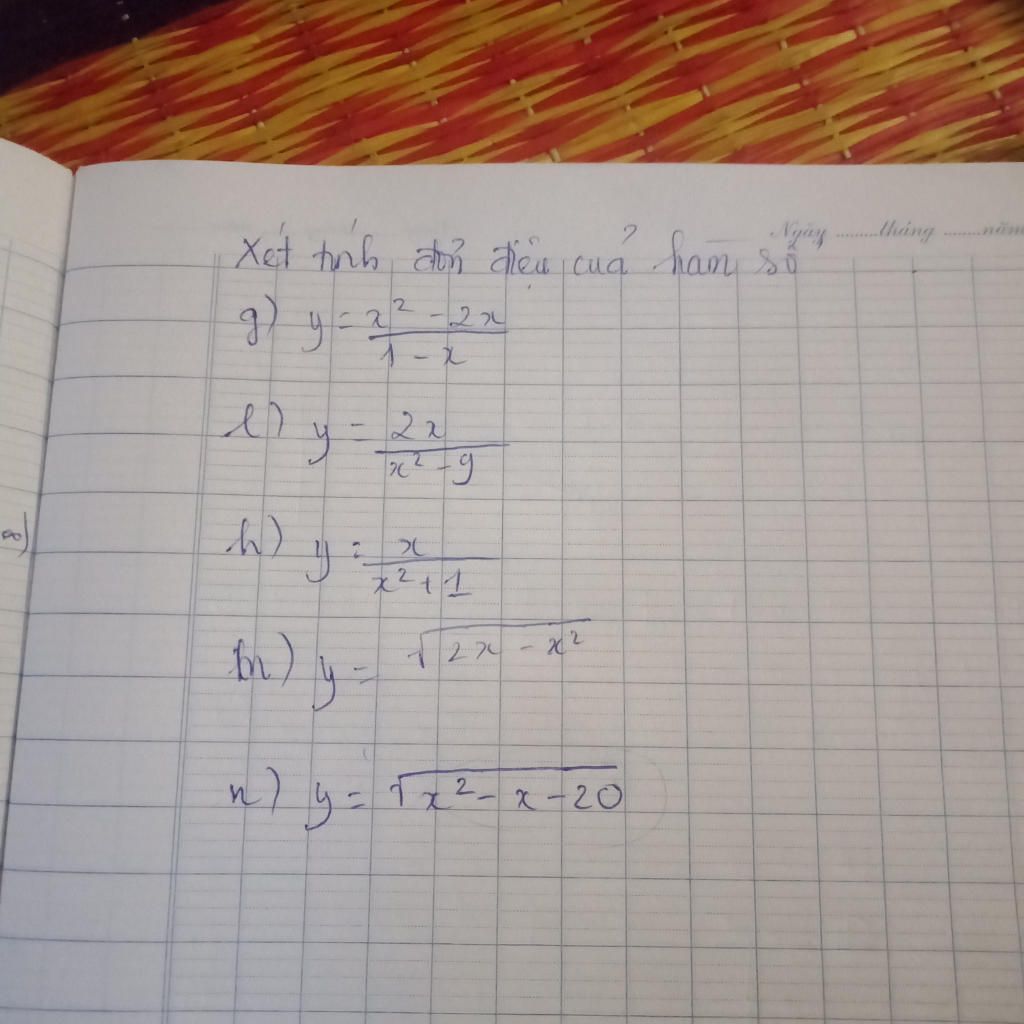 Ngày ........tháng .......năm
Xét tính đơn điệu của hàm số
g) y = \frac{x^2 - 2x}{1 - x}
l) y = \frac{2x}{x^2 - 9}
h) y = \frac{x}{x^2 + 1}
m) y = \sqrt{2x - x^2}
n) y = \sqrt{x^2 - x - 20}